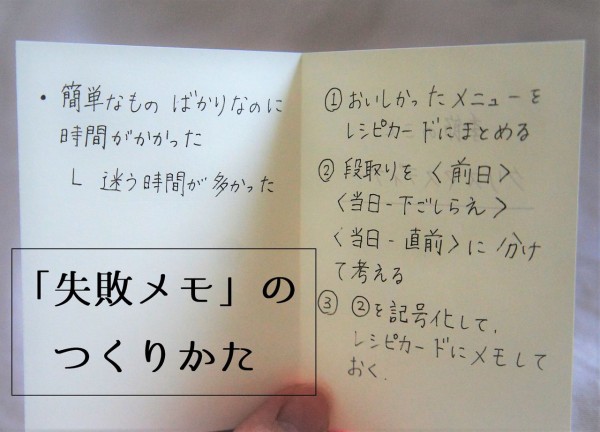 ・簡単なもの ばかりなのに
時間がかかった
└ 迷う時間が多かった
「失敗メモ」の
つくりかた
①おいしかったメニューを
レシピカードにまとめる
②段取りを〈前日〉
〈当日-下ごしらえ〉
〈当日-直前〉に分け
て考える
③ ②を記号化して、
レシピカードにメモして
おく.